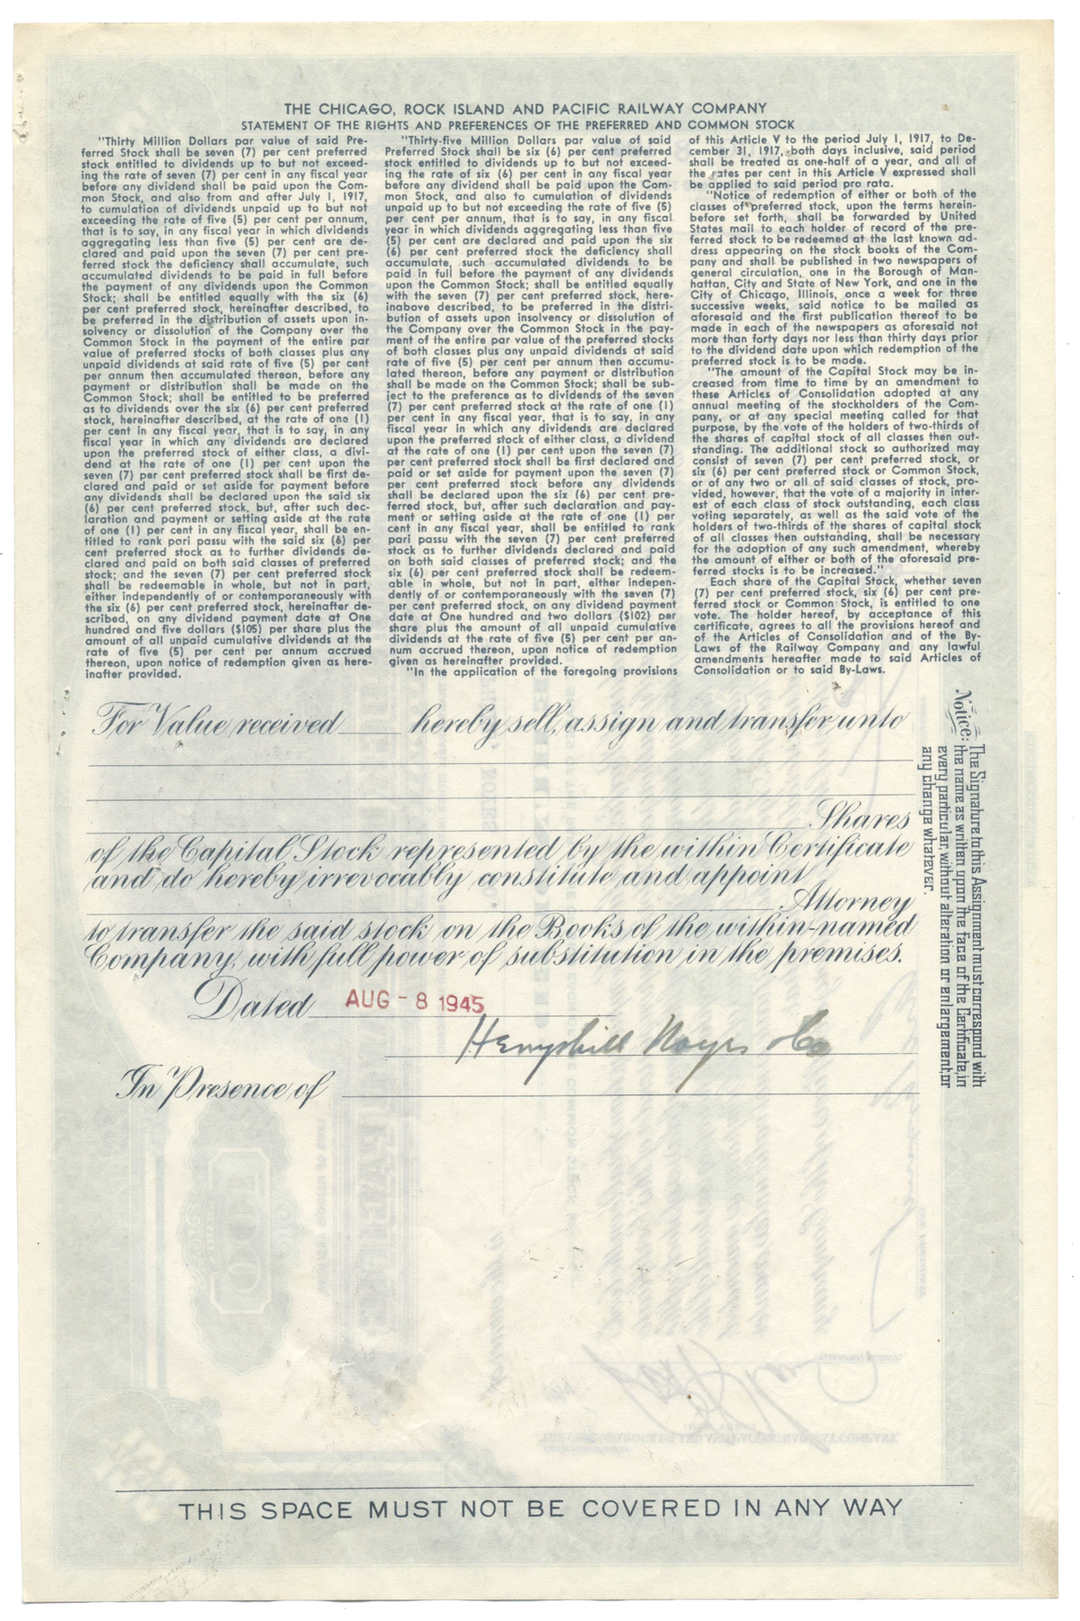 THE CHICAGO, ROCK ISLAND AND PACIFIC RAILWAY COMPANY
STATEMENT OF THE RIGHTS AND PREFERENCES OF THE PREFERRED AND COMMON STOCK
"Thirty Million Dollars par value of said Pre-
ferred Stock shall be seven (7) per cent preferred
stock entitled to dividends up to but not exceed-
ing the rate of seven (7) per cent in any fiscal year
before any dividend shall be paid upon the Com-
mon Stock, and also from and after July 1, 1917,
to cumulation of dividends unpaid up to but not
exceeding the rate of five (5) per cent per annum,
that is to say, in any fiscal year in which dividends
aggregating less than five (5) per cent are de-
clared and paid upon the seven (7) per cent pre-
ferred stock the deficiency shall accumulate, such
accumulated dividends to be paid in full before
the payment of any dividends upon the Common
Stock; shall be entitled equally with the six (6)
per cent preferred stock, hereinafter described, to
be preferred in the distribution of assets upon in-
solvency or dissolution of the Company over the
Common Stock in the payment of the entire par
value of preferred stocks of both classes plus any
unpaid dividends at said rate of five (5) per cent
per annum then accumulated thereon, before any
payment or distribution shall be made on the
Common Stock; shall be entitled to be preferred
as to dividends over the six (6) per cent preferred
stock, hereinafter described, at the rate of one (1)
per cent in any fiscal year, that is to say, in any
fiscal year in which any dividends are declared
upon the preferred stock of either class, a divi-
dend at the rate of one (1) per cent upon the
seven (7) per cent preferred stock shall be first de-
clared and paid or set aside for payment before
any dividends shall be declared upon the said six
(6) per cent preferred stock, but, after such dec-
laration and payment or setting aside at the rate
of one (1) per cent in any fiscal year, shall be en-
titled to rank pari passu with the said six (6) per
cent preferred stock as to further dividends de-
clared and paid on both said classes of preferred
stock; and the seven (7) per cent preferred stock
shall be redeemable in whole, but not in part,
either independently of or contemporaneously with
the six (6) per cent preferred stock, hereinafter de-
scribed, on any dividend payment date at One
hundred and five dollars ($105) per share plus the
amount of all unpaid cumulative dividends at the
rate of five (5) per cent per annum accrued
thereon, upon notice of redemption given as here-
inafter provided.
"Thirty-five Million Dollars par value of said
Preferred Stock shall be six (6) per cent preferred
stock entitled to dividends up to but not exceed-
ing the rate of six (6) per cent in any fiscal year
before any dividend shall be paid upon the Com-
mon Stock, and also to cumulation of dividends
unpaid up to but not exceeding the rate of five (5)
per cent per annum, that is to say, in any fiscal
year in which dividends aggregating less than five
(5) per cent are declared and paid upon the six
(6) per cent preferred stock the deficiency shall
accumulate, such accumulated dividends to be
paid in full before the payment of any dividends
upon the Common Stock; shall be entitled equally
with the seven (7) per cent preferred stock, here-
inabove described, to be preferred in the distri-
bution of assets upon insolvency or dissolution of
the Company over the Common Stock in the pay-
ment of the entire par value of the preferred stocks
of both classes plus any unpaid dividends at said
rate of five (5) per cent per annum then accumu-
lated thereon, before any payment or distribution
shall be made on the Common Stock; shall be sub-
ject to the preference as to dividends of the seven
(7) per cent preferred stock at the rate of one (1)
per cent in any fiscal year, that is to say, in any
fiscal year in which any dividends are declared
upon the preferred stock of either class, a dividend
at the rate of one (1) per cent upon the seven (7)
per cent preferred stock shall be first declared and
paid or set aside for payment upon the seven (7)
per cent preferred stock before any dividends
shall be declared upon the six (6) per cent pre-
ferred stock, but, after such declaration and pay-
ment or setting aside at the rate of one (1) per
cent in any fiscal year, shall be entitled to rank
pari passu with the seven (7) per cent preferred
stock as to further dividends declared and paid
on both said classes of preferred stock; and the
six (6) per cent preferred stock shall be redeem-
able in whole, but not in part, either indepen-
dently of or contemporaneously with the seven (7)
per cent preferred stock, on any dividend payment
date at One hundred and two dollars ($102) per
share plus the amount of all unpaid cumulative
dividends at the rate of five (5) per cent per an-
num accrued thereon, upon notice of redemption
given as hereinafter provided.
"In the application of the foregoing provisions
of this Article V to the period July 1, 1917, to De-
cember 31, 1917, both days inclusive, said period
shall be treated as one-half of a year, and all of
the rates per cent in this Article V expressed shall
be applied to said period pro rata.
"Notice of redemption of either or both of the
classes of preferred stock, upon the terms herein-
before set forth, shall be forwarded by United
States mail to each holder of record of the pre-
ferred stock to be redeemed at the last known ad-
dress appearing on the stock books of the Com-
pany and shall be published in two newspapers of
general circulation, one in the Borough of Man-
hattan, City and State of New York, and one in the
City of Chicago, Illinois, once a week for three
successive weeks, said notice to be mailed as
aforesaid and the first publication thereof to be
made in each of the newspapers as aforesaid not
more than forty days nor less than thirty days prior
to the dividend date upon which redemption of the
preferred stock is to be made.
"The amount of the Capital Stock may be in-
creased from time to time by an amendment to
these Articles of Consolidation adopted at any
annual meeting of the stockholders of the Com-
pany, or at any special meeting called for that
purpose, by the vote of the holders of two-thirds of
the shares of capital stock of all classes then out-
standing. The additional stock so authorized may
consist of seven (7) per cent preferred stock, or
six (6) per cent preferred stock or Common Stock,
or of any two or all of said classes of stock, pro-
vided, however, that the vote of a majority in inter-
est of each class of stock outstanding, each class
voting separately, as well as the said vote of the
holders of two-thirds of the shares of capital stock
of all classes then outstanding, shall be necessary
for the adoption of any such amendment, whereby
the amount of either or both of the aforesaid pre-
ferred stocks is to be increased."
Each share of the Capital Stock, whether seven
(7) per cent preferred stock, six (6) per cent pre-
ferred stock or Common Stock, is entitled to one
vote. The holder hereof, by acceptance of this
certificate, agrees to all the provisions hereof and
of the Articles of Consolidation and of the By-
Laws of the Railway Company and any lawful
amendments hereafter made to said Articles of
Consolidation or to said By-Laws.
For Value received hereby sell, assign and transfer unto
Shares
of the Capital Stock represented by the within Certificate
and do hereby irrevocably constitute and appoint
Attorney
to transfer the said stock on the Books of the within-named
Company, with full power of substitution in the premises.
Dated AUG - 8 1945
Hemphill Noyes & Co
In Presence of
Notice: The Signature to this Assignment must correspond with
the name as written upon the face of the Certificate, in
every particular, without alteration or enlargement, or
any change whatever.
THIS SPACE MUST NOT BE COVERED IN ANY WAY